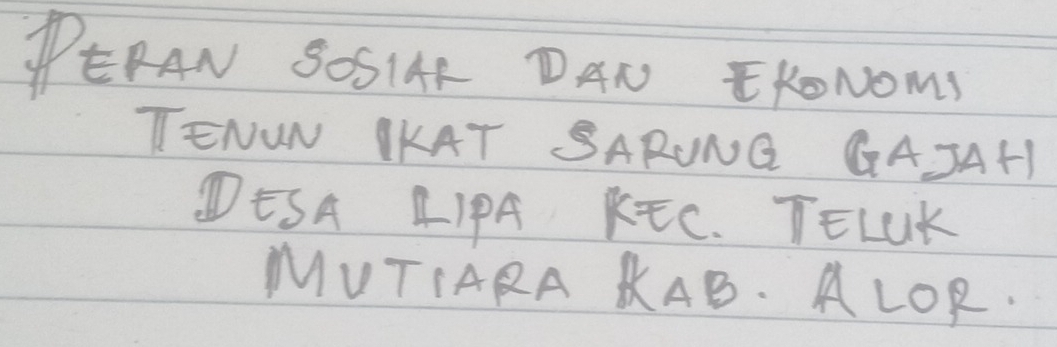 PERAN SOSIAL DAN EKONOMI
TENUN IKAT SARUNG GAJAH
DESA LIPA KEC. TELUK
MUTIARA KAB. ALOR.